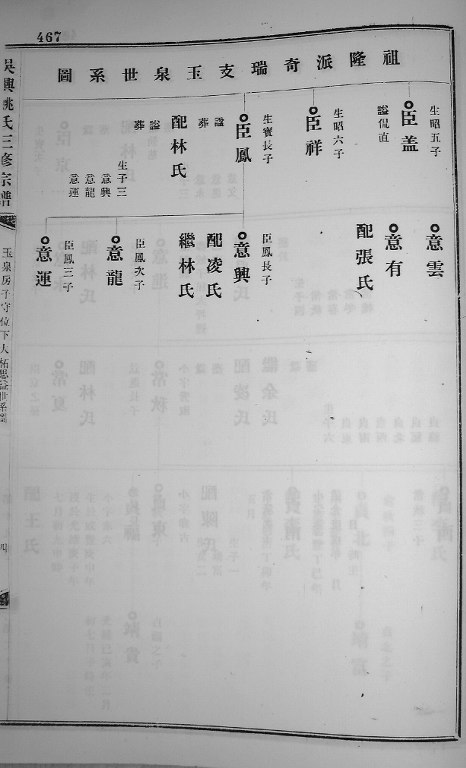 467
祖隆派奇瑞支玉泉世系圖
臣盖
生昭五子
謚侃直
臣祥
生昭六子
臣鳳
生賓長子
謚
葬
配林氏
謚
葬
生子三
意興
意龍
意運
意雲
意有
配張氏
意興
臣鳳長子
配凌氏
繼林氏
意龍
臣鳳次子
意運
臣鳳三子
吳興姚氏三修宗譜
四